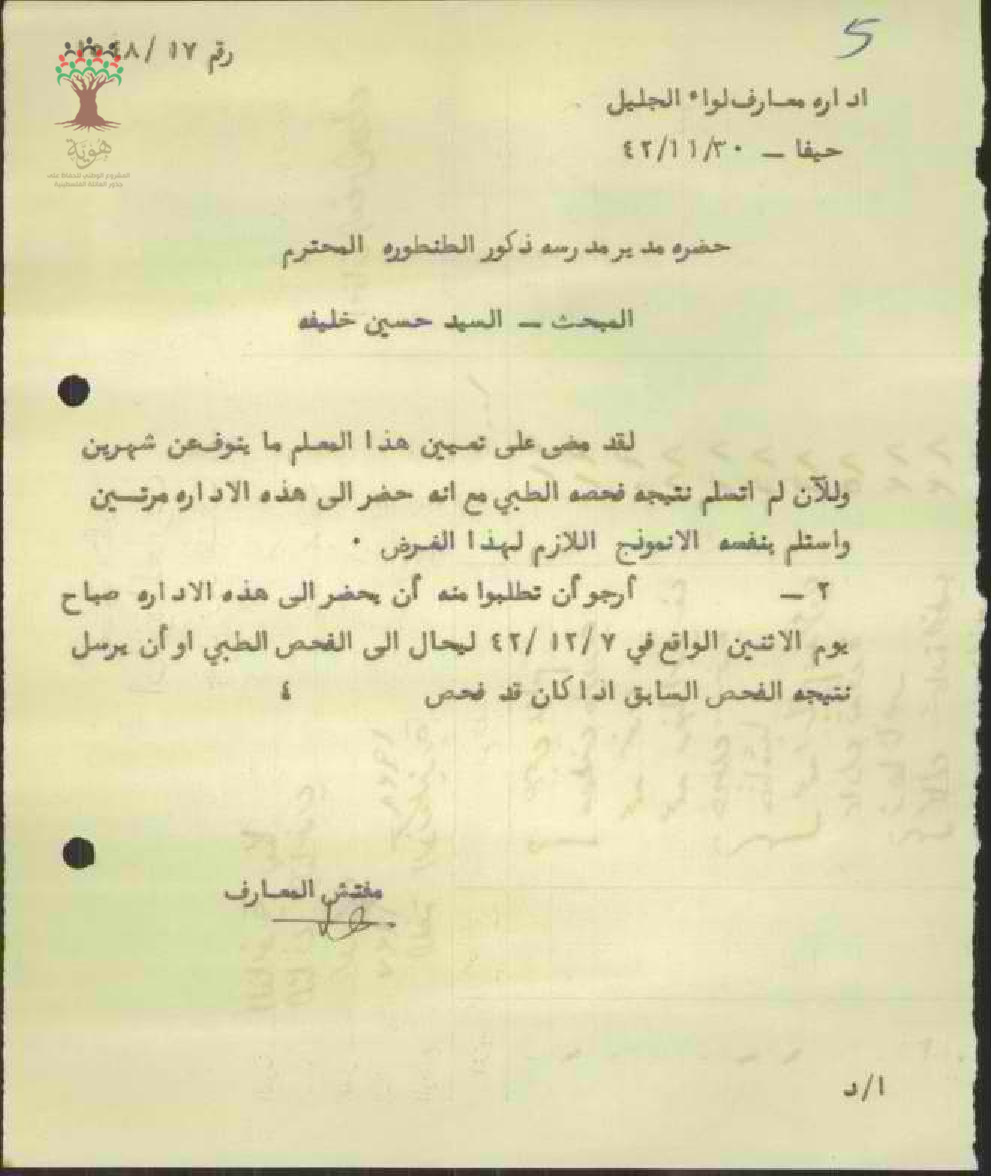 5
رقم ١٧ /
اداره معارف لواء الجليل
حيفا – ٤٢/١١/٣٠
هوية
المشروع الوطني للحفاظ على
جذور العائلة الفلسطينية
حضره مدير مدرسه ذكور الطنطوره المحترم
المبحث – السيد حسين خليفه
لقد مضى على تعيين هذا المعلم ما ينوف عن شهرين
وللآن لم اتسلم نتيجه فحصه الطبي مع انه حضر الى هذه الاداره مرتسين
واستلم بنفسه الانموذج اللازم لهذا الغرض ٠
٢ – أرجو أن تطلبوا منه أن يحضر الى هذه الاداره صباح
يوم الاثنين الواقع في ٧/ ١٢/ ٤٢ ليحال الى الفحص الطبي او أن يرسل
نتيجه الفحص السابق اذا كان قد فحص ٤
مفتش المعارف
ا/د